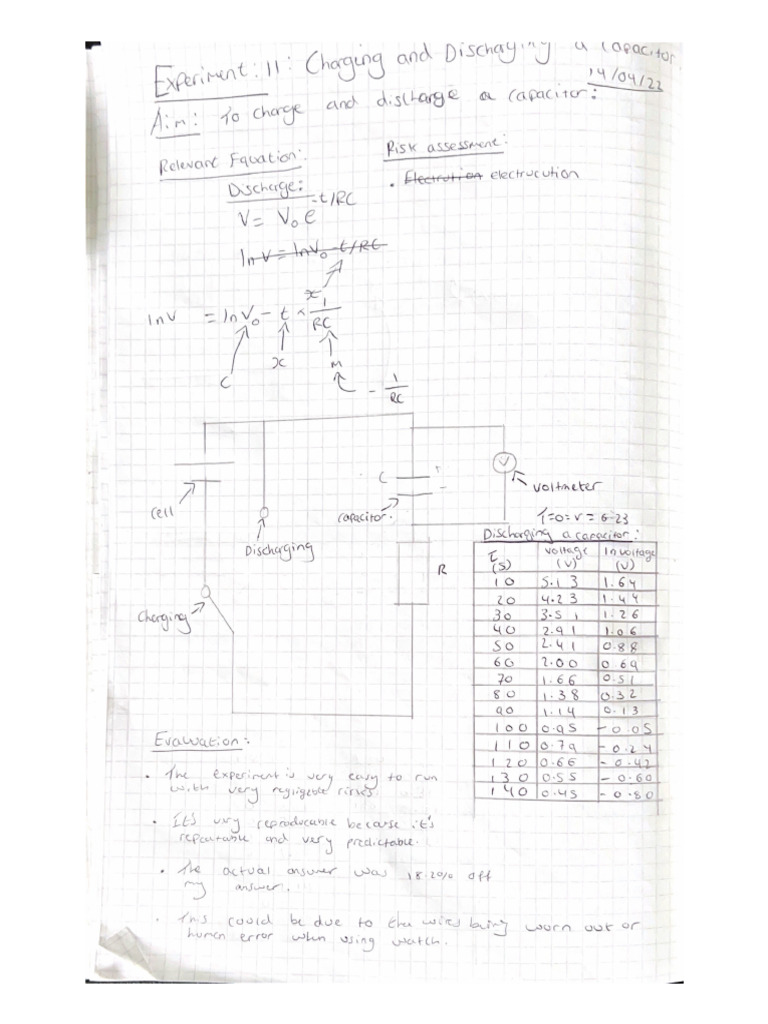 Experiment: 11: Charging and Discharging a capacitor
14/04/22
Aim: To charge and discharge a capacitor:
Relevant Equation:
Risk assessment:
• Electrution electrucution
Discharge:
V = V₀ e^-t/RC
lnV = lnV₀ -t/RC
x
lnV = lnV₀ - t × 1/RC
C
x
M
- 1/RC
C
+
-
V
voltmeter
cell
capacitor.
Discharging
R
Charging
T=0 = V = 6.23
Discharging a capacitor:
t (s) voltage (V) ln voltage (V)
10 5.13 1.64
20 4.23 1.44
30 3.51 1.26
40 2.91 1.06
50 2.41 0.88
60 2.00 0.69
70 1.66 0.51
80 1.38 0.32
90 1.14 0.13
100 0.95 -0.05
110 0.79 -0.24
120 0.66 -0.42
130 0.55 -0.60
140 0.45 -0.80
Evaluation:
• The experiment is very easy to run
with very negligible risks.
• It's very reproducable because it's
repeatable and very predictable.
• The actual answer was 18.2% off
my answer.
• This could be due to the wires being worn out or
human error when using watch.